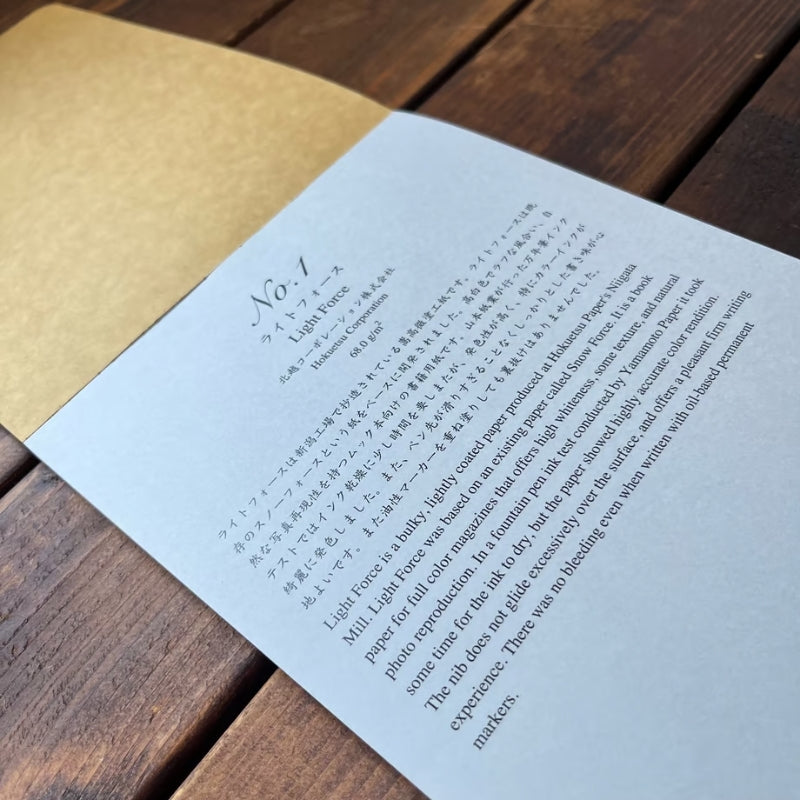 No.1
ライトフォース
Light Force
北越コーポレーション株式会社
Hokuetsu Corporation
68.0 g/m²
ライトフォースは新潟工場で抄造されている嵩高微塗工紙です。ライトフォースは既
存のスノーフォースという紙をベースに開発されました。高白色でラフな風合い、自
然な写真再現性を持つムック本向けの書籍用紙です。山本紙業が行った万年筆インク
テストではインク乾燥に少し時間を要しまたが、発色性が高く、特にカラーインクが
綺麗に発色しました。また、ペン先が滑りすぎることなくしっかりとした書き味が心
地よいです。また油性マーカーを重ね塗りしても裏抜けはありませんでした。
Light Force is a bulky, lightly coated paper produced at Hokuetsu Paper's Niigata
Mill. Light Force was based on an existing paper called Snow Force. It is a book
paper for full color magazines that offers high whiteness, some texture, and natural
photo reproduction. In a fountain pen ink test conducted by Yamamoto Paper it took
some time for the ink to dry, but the paper showed highly accurate color rendition.
The nib does not glide excessively over the surface, and offers a pleasant firm writing
experience. There was no bleeding even when written with oil-based permanent
markers.